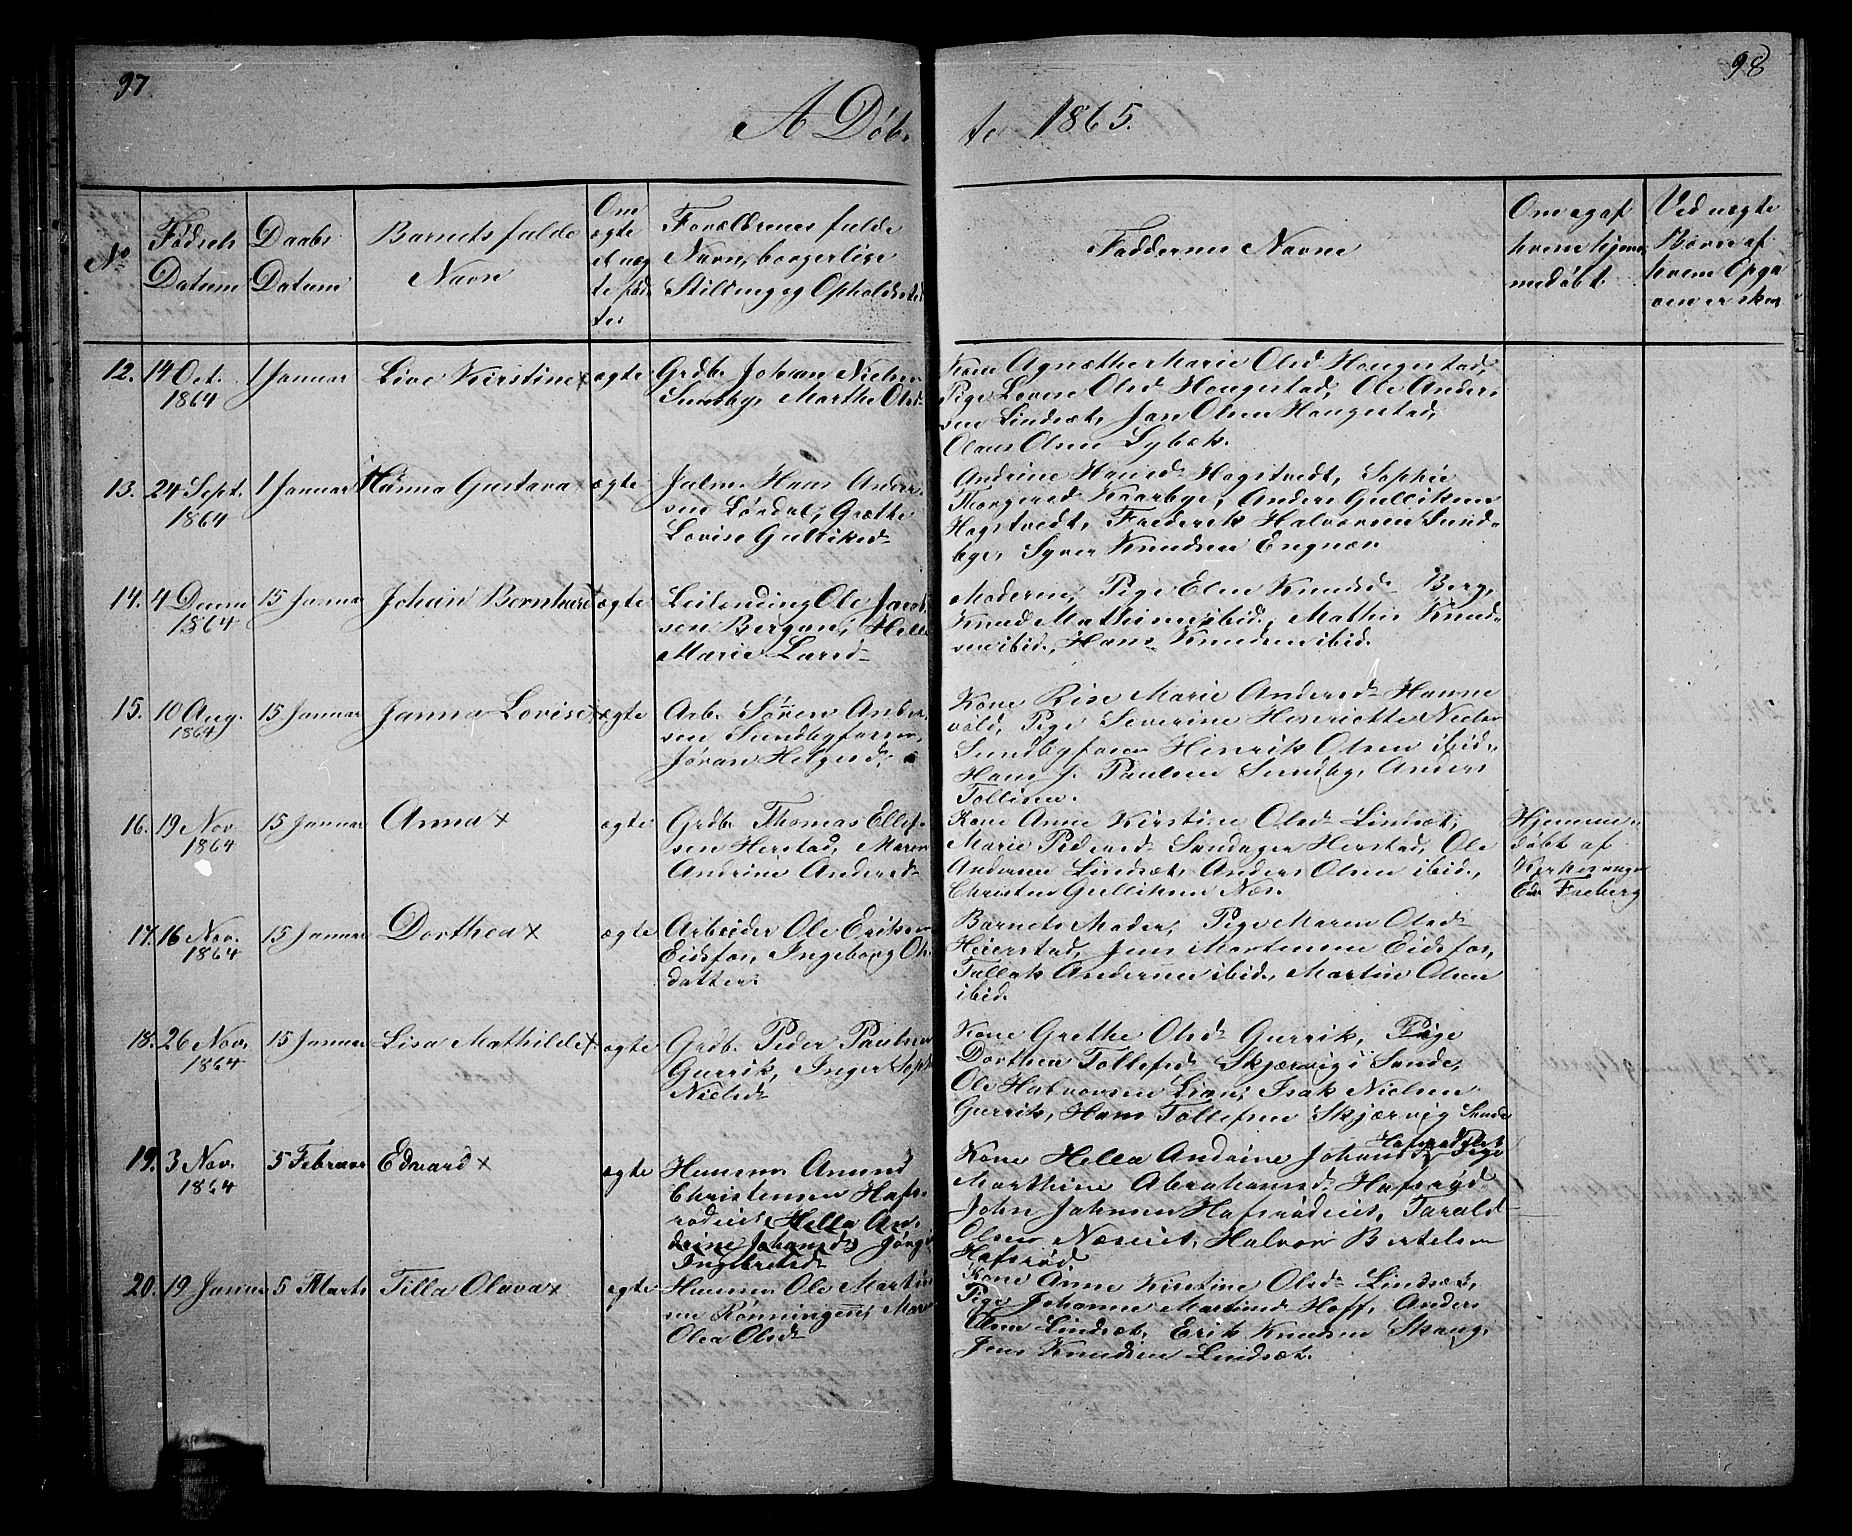 97
98
A Døb-
te 1865.
No
Fødsels
Datum
Daabs
Datum
Barnets fulde
Navn
Om
ægte
Forældrenes fulde
Navn, borgerlige
Stilling og Opholdssted
Faddernes Navne
Om og af
hvem hjem
medøbt
Ved uægte
hvem Opga
ven er sket
12. 14 Oct. 1 Januar Live Kirstine x ægte Grdb. Johan Nielsen
1864 Sundby, Marthe Olsd
Kone Agnethe Marie Olsd Haugestad,
Pige Lovise Olsd Haugestad, Ole Ander-
sen Lindsæt, Jan Olsen Haugestad,
Olaus Olsen Lybek.
13. 24 Sept. 1 Januar Hanna Gustava x ægte Hans Ander-
1864 sen Lørdal, Grethe
Lovise Gulliksd
Andrine Hansd Hagstvedt, Sophie
Thorgersd Kaarbye, Anders Gulliksen
Hagstvedt, Frederik Halvorsen Sund-
bye, Syver Knudsen Engnæs
14. 4 Decem 15 Januar Johan Bernhard ægte Leilending Ole Jacob
1864 sen Bergan, Helle
Marie Larsd
Moderen, Pige Elen Knudsd Berg,
Knud Mathisen ibid, Mathis Knud-
sen ibid., Hans Knudsen ibid.
15. 10 Aug. 15 Januar Janna Lovise x ægte Arb. Søren Ander-
1864 sen Sundbyfossen,
Jøran Helgesd.
Kone Rise Marie Andersd Hanne
vold, Pige Severine Henriette Niels
Sundbyfossen Henrik Olsen ibid.,
Hans J. Paulsen Sundby, Anders
Tollisen.
16. 19 Nov. 15 Januar Anna x ægte Grdb. Thomas Ellef-
1864 sen Herstad, Maren
Andrine Andersd
Kone Anne Kirstine Olsd Lindsæt,
Marie Pedersd Sandager Herstad, Ole
Andersen Lindsæt, Anders Olsen ibid.,
Christen Gulliksen Næs.
Hjemme-
døbt af
Kirkesanger
Freberg
17. 16 Nov. 15 Januar Dorthea x ægte Arbeider Ole Eriksen
1864 Eidsfos, Ingeborg Ols
datter.
Barnets Moder, Pige Maren Olsd
Heierstad, Jens Mortensen Eidsfos,
Tollak Andersen ibid., Martin Olsen
ibid.
18. 26 Nov. 15 Januar Lisa Mathilde x ægte Grdb. Peder Paulsen
1864 Gurrik, Inger Soph
Nielsd
Kone Grethe Olsd Gurrik, Pige
Dorthea Tollefsd Skjærvig i Sande,
Ole Halvorsen Lian, Isak Nielsen
Gurrik, Hans Tollefsen Skjærvig Sande
19. 3 Nov. 5 Februar Edvard x ægte Husm. Amund
1864 Christensen Hafs-
rødeiet, Hella An-
drine Johansd Jørgi
Ingebretsd
Kone Hella Andrine Johansd Pige
Marthine Abrahamsd Hafsrød
John Johnsen Hafsrødeiet, Tarald
Olsen Næseiet, Halvor Bertelsen
Hafsrød
20. 19 Januar 5 Marts Tilla Olava x ægte Husm. Ole Martin
sen Rønningen, Maren
Olea Olsd
Kone Anne Kirstine Olsd Lindsæt,
Pige Johanne Martinsd Hoff, Anders
Olsen Lindsæt, Erik Knudsen Skaug,
Jens Knudsen Lindsæt.